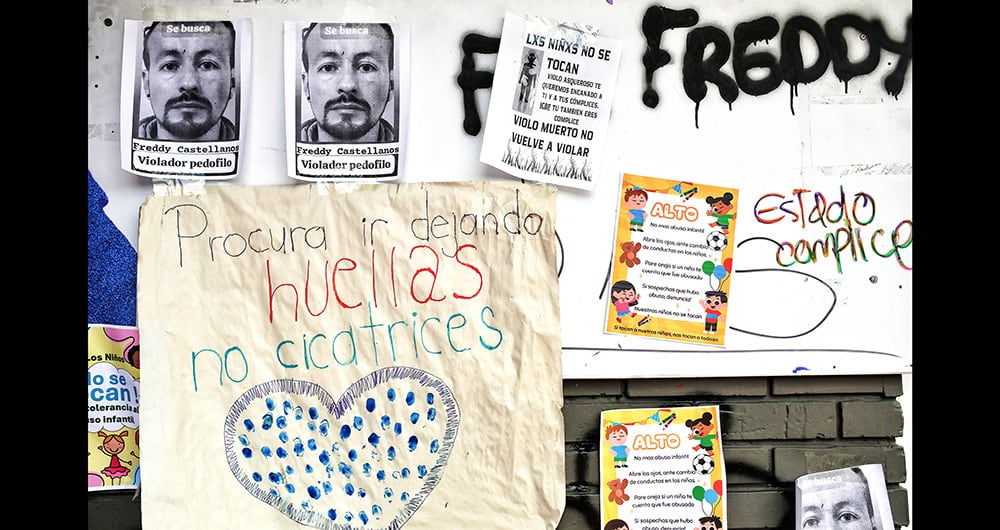 Se busca
Freddy Castellanos
Violador pedofilo
Se busca
Freddy Castellanos
Violador pedofilo
LXS NIÑXS NO SE
TOCAN
VIOLO ASQUEROSO TE
QUEREMOS ENCANADO A
TI Y A TUS CÓMPLICES.
ICBF TU TAMBIEN ERES
COMPLICE
VIOLO MUERTO NO
VUELVE A VIOLAR
F
FREDDY
Procura ir dejando
huellas
no cicatrices
ALTO
No mas abuso infantil
Abre los ojos, ante cambio
de conductas en los niños.
Pare oreja si un niño te
cuenta que fue abusado
Si sospechas que hubo
abuso, denuncia!
Nuestros niños no se tocan
Si tocan a nuestros niños, nos tocan a todo@s
EStado
complice
Los Niños
No se
ocan!
tolerancia al
uso infantil
ALTO
No mas abuso infantil
Abre los ojos, ante cambio
de conductas en los niños.
Pare oreja si un niño te
cuenta que fue abusado
Si sospechas que hubo
abuso, denuncia!
Se busca